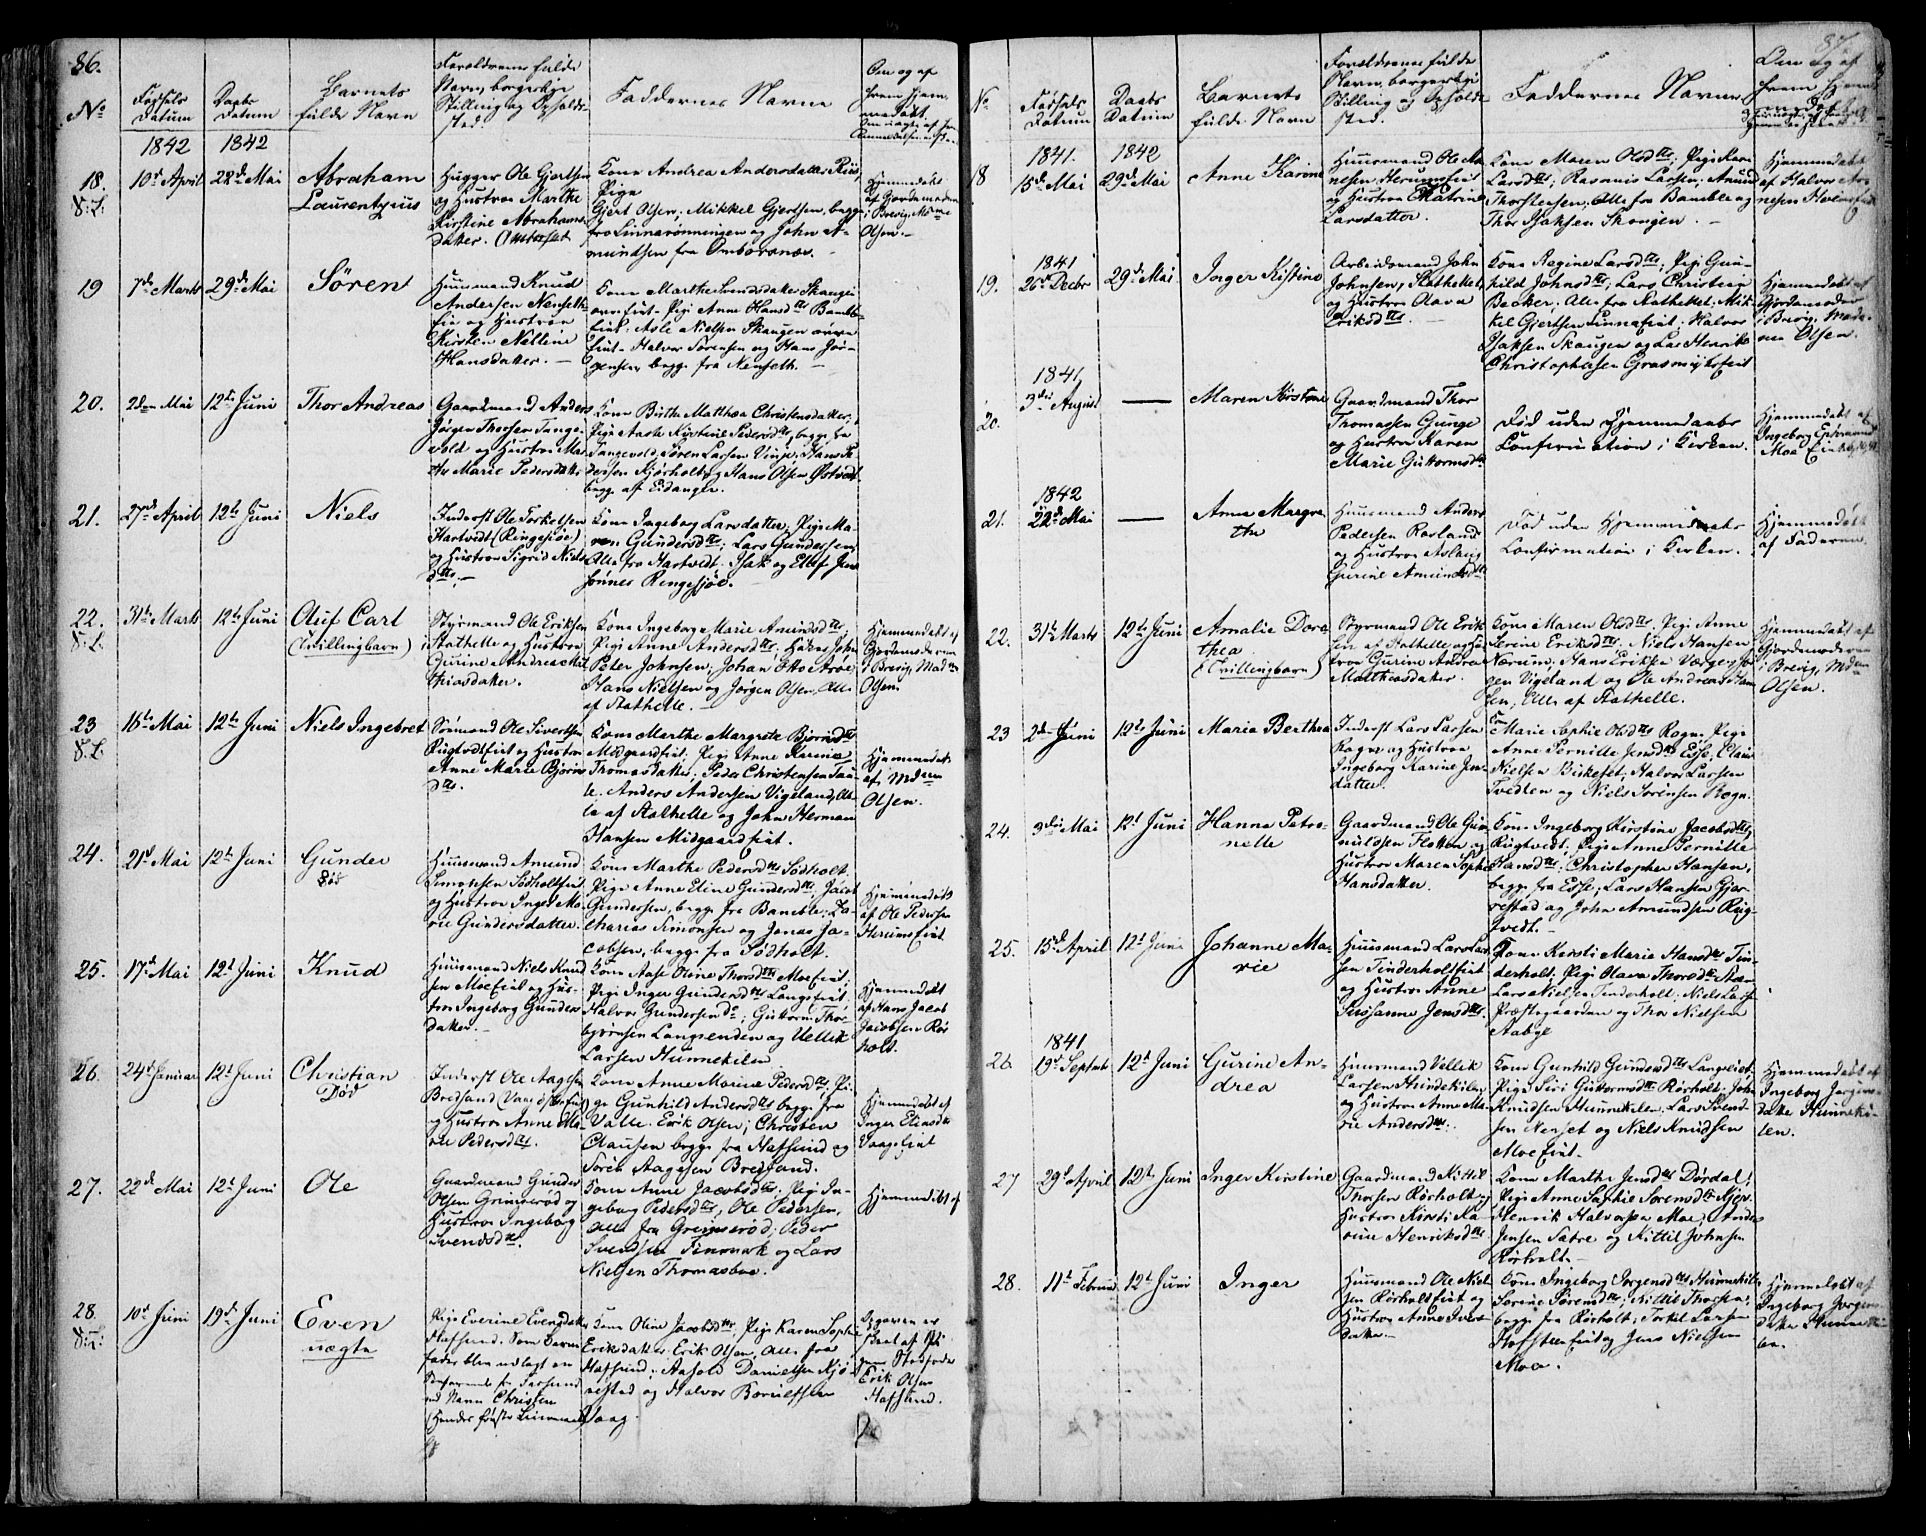 86.
No
Fødsels
Datum
Daabs
Datum
Barnets
fulde Navn
Forældrenes fulde
Navn, borgerlige
Stilling og Opholds-
sted.
Faddernes Navne
Om og af
hvem hjem-
medøbt.
1842
1842
18.
10de April
22de Mai
Abraham
Laurentyius
Hugger Ole Gjertsen
og Hustrue Marthe
Kirstine Abrahams-
datter.
Kone Andrea Andersdatter Riis,
Pige
Gjert Olsen; Mikkel Gjertsen, begge
fra Linnarønningen og John A-
mundsen fra Omborsnæs.
Hjemmedøbt
af Gjordemoderen
i Brevig, Mdme
Olsen.
19
7de Marts
29de Mai
Søren
Huusmand Knud
Andersen Nenseth-
eie og Hustrue
Kirsten Nelline
Hansdatter.
Kone Marthe Svendsdatter Skaugen
Pige Anne Hansdtr Bamble-
Asle Nielsen Skaugen øvre
eiet. Halvor Sørensen og Hans Jør-
gensen, begge fra Nenseth.
20.
2den Mai
12te Juni
Thor Andreas
Gaardmand Anders
Jørgen Thorsen Tange-
vold og Hustrue Mar-
the Marie Pedersdatter
Kone Birthe Matthea Christensdatter,
Pige Aaste Kirstine Pedersdtr, begge fra
Tangevold, Søren Larsen Vinje, Hans Pe-
dersen Kjørholt og Hans Olsen Østvedt
begge af Eidanger.
21.
27de April
12te Juni
Niels
Inderst Ole Torkelsen
Hartvedt (Ringesjøe)
og Hustrue Sigrid Niels-
dtr.
Kone Ingeborg Larsdatter; Pige Ma-
ren Gundersdtr; Lars Gundersen,
Alle fra Hartvedt. Isak og Ellef Jen-
sønnes Ringesjøe.
22.
31te Marts
12te Juni
Oluf Carl
(Tvillingbarn)
Styrmand Ole Eriksen
Stathelle og Hustrue
Gurine Andrea Mat-
thiasdatter.
Kone Ingeborg Marie Amundsdtr,
Pige Anne Andersdtr;
Peter Johnsen; Johan Otto Arøe,
Hans Nielsen og Jørgen Olsen, Alle
af Stathelle.
Hjemmedøbt af
Gjordemoderen
i Brevig, Madme
Olsen.
23
16de Mai
12te Juni
Niels Ingebret
Sømand Ole Sivertsen
Rugtvedteiet og Hustrue
Anne Marie Bjørns-
dtr.
Kone Marthe Margrete Bjørnsdtr
Midgaardeiet, Pige Anne Karine
Thomasdatter; Peder Christensen
Anders Andersen Vigeland,
af Stathelle og John Herman
Hansen Midgaardeiet.
Hjemmedøbt
af Mdme
Olsen.
24.
21de Mai
12te Juni
Gunder
Død
Huusmand Amund
Simonsen Sødholteiet
og Hustrue Inger Ma-
rie Gundersdatter
Kone Marthe Pedersdtr Sødholt.
Pige Anne Eline Gundersdtr, Jacob
Gundersen, begge fra Bamble; Za-
charias Simonsen og Jonas Ja-
cobsen, begge fra Sødholt.
Hjemmedøbt
af Ole Pedersen
Herumseiet
25.
17de Mai
12te Juni
Knud
Huusmand Niels Knud-
sen Moeeiet og Hus-
true Ingeborg Gunders-
datter.
Kone Aase Oline Thorsdtr Moeeiet;
Pige Inger Gundersdtr Langseiet;
Halvor Gundersen do; Guttorm Thor-
bjørnsen Langsenden og Vellik
Larsen Hunnekilen
Hjemmedøbt
af Hans Jacob
Jacobsen Rør-
holt.
26.
24de Januar
12te Juni
Christian
Død
Inderst Ole Aagesen
Bredsand
og Hustrue Anne Ma-
rie Pedersdtr.
Kone Anne Marie Pedersdtr, Pi-
ge Gunhild Andersdtr begge fra
Valle. Erik Olsen; Christen
Clausen begge fra Hafsund og
Søren Aagesen Bredsand.
Hjemmedøbt af
Inger Elensdtr
Vaageeiet
27.
22de Mai
12te Juni
Ole
Gaardmand Gunder
Olsen Grimmerød og
Hustrue Ingeborg
Svendsdtr.
Kone Anne Jacobsdtr; Pige In-
geborg Pedersdtr, Ole Pedersen,
alle fra Grimmerød; Peder
Svendsen Finmark og Lars
Nielsen Thomasboe.
Hjemmedøbt af
28.
10de Juni
19de Juni
Even
uægte
Pige Everine Evensdatter
Hafsund. Som Barne-
fader blev udlagt en
ved Navn Christen
(Hendes første Leiermaal)
Kone Oline Jacobsdtr, Pige Karen Sophie
Eriksdatter Erik Olsen, alle fra
Hafsund; Aasold Danielsen Kjø-
restad og Halvor Boruldsen
Vaag.
Opgaven er
skeet af Pi-
gens Stedfader
Erik Olsen
Hafsund.
87.
No.
Fødsels
Datum
Daabs
Datum
Barnets
fulde Navn
Forældrenes fulde
Navn, borgerlige
Stilling og Opholds-
sted.
Faddernes Navne
Om og af
hvem hjem-
medøbt
1841.
1842
18
15de Mai
29de Mai
Anne Karine
Huusmand Ole Ar-
nesen Herumseiet
og Hustrue Catrine
Larsdatter.
Kone Maren Olsdtr; Pige Karen
Larsdtr; Rasmus Larsen; Amund
Thorstensen, Alle fra Bamble og
Thor Isaksen Skougen.
Hjemmedøbt
af Halvor Ar-
nesen Herumseiet
1841
19.
26de Decbr
29de Mai
Inger Kistine
Arbeidsmand John
Johnsen, Stathelle,
og Hustrue Olava
Eriksdtr.
Kone Regine Larsdtr; Pige Gun-
hild Johnsdtr; Lars Christian
Becker, Alle fra Stathelle; Mik-
kel Gjertsen Linnaeiet; Halvor
Isaksen Skaugen og Lars Henrik
Christophersen Grasmyhreiet
Hjemmedøbt af
Gjordemoder
i Brevig, Mada-
me Olsen.
1841
20.
3die August
Maren Kirstine
Gaardmand Thor
Thomasen Gunge
og Hustrue Karen
Marie Guttormsdtr
Død uden Hjemmedaabs
Confirmation i Kirken.
Hjemmedøbt af
Ingeborg
Moe
1842
21.
22de Mai
Anne Margre-
the
Huusmand Anders
Pedersen Rosland
og Hustrue Aslaug
Gurine Amundsdtr
Død uden Hjemmedaabs
Confirmation i Kirken.
Hjemmedøbt
af Faderen.
22.
31te Marts
12te Juni
Amalie Doro-
thea
(Tvillingbarn)
Styrmand Ole Erik-
sen af Stathelle og Hus-
true Gurine Andrea
Matthiasdatter.
Kone Maren Olsdtr, Pige Anne
Serine Eriksdtr; Niels Hansen
Nærum, Hans Eriksen Værge, Jør-
gen Vigeland og Ole Andreas Han-
sen, Alle af Stathelle.
Hjemmedøbt af
Gjordemoderen
i Brevig, Mdam
Olsen.
23
2den Juni
12te Juni
Maria Berthea
Inderst Lars Larsen
Rogn og Hustrue
Ingeborg Karine Jens-
datter.
Kone
Marie Sophie Olsdtr Rogn. Pige
Anne Pernille Jensdtr Esse; Claus
Nielsen Birkeset; Halvor Larsen
Tvedten og Niels Sørensen Rogn.
24.
3die Mai
12te Juni
Hanne Petro-
nelle
Gaardmand Ole Gun-
nuldsen Flotten og
Hustrue Maren Sophie
Hansdatter.
Kone Ingeborg Kirstine Jacobsdtr,
Rugtvedt, Pige Anne Pernille
Hansdtr; Christopher Hansen,
begge fra Esse; Lars Hansen Gjer-
restad og John Amundsen Rug-
tvedt.
25.
15de April
12te Juni
Johanne Ma-
rie
Huusmand Lars Lar-
sen Tinderholteiet
og Hustrue Anne
Susanne Jensdtr.
Kone Kersti Marie Hansdtr Tin-
derholt. Pige Olava Thorsdtr
Lars Nielsen Tinderholt; Niels Lars-
Præstegaarden og Thor Nielsen
Aabye
1841
26.
19de Septembr
12te Juni
Gurine An-
drea
Huusmand Vellik
Larsen Hundekilen
og Hustrue Anne Ma-
rie Andersdtr.
Kone Gunhild Gundersdtr Langseiet,
Pige Siri Guttormsdtr Rørholt; John
Knudsen Hunnekilen, Lars Svend-
sen Nenset og Niels Knudsen
Moeeiet.
Hjemmedøbt af
Ingeborg Jørgens-
datter Hunneki-
len.
27
29de April
12te Juni
Inger Kirstine
Gaardmand Kittil
Thorsen Rørholt og
Hustrue Kirsti Ka-
rine Henriksdtr.
Kone Marthe Jensdtr Dørdal;
Pige Anne Sophie Sørensdtr
Henrik Halvorsen Moe; Anders
Jensen Fæbre og Kittil Johnsen
Rørholt.
28.
11te Februar
12te Juni
Inger
Huusmand Ole Niel-
sen Rørholteiet og
Hustrue Anne Ivers-
datter.
Kone Ingeborg Jørgensdtr Hunnekilen
Serine Sørensdtr; Kittil Thorsen,
begge fra Rørholt; Torkil Larsen
Hafsteeneiet og Jens Nielsen
Moe.
Hjemmedøbt af
Ingeborg Jørgens-
datter Hunneki-
len.